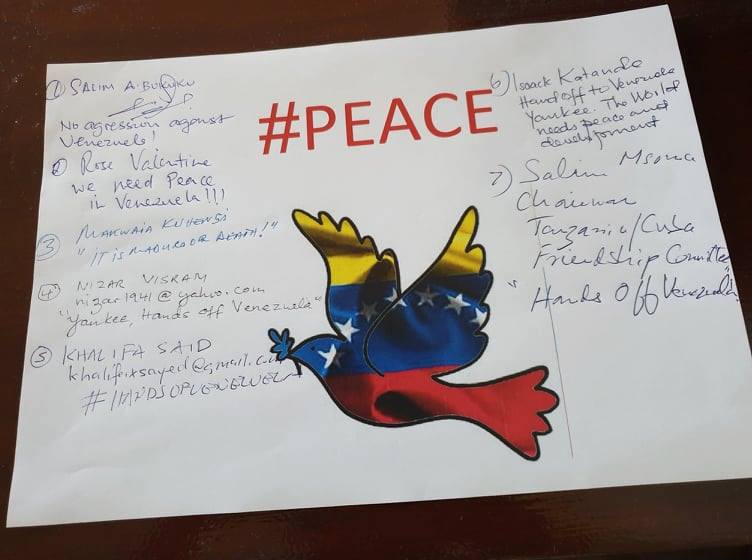 1) SALIM A. BURUKU
No agression against
Venezuela!
2) Rose Valentine
we need Peace
in Venezuela!!!
3) MAKWAIA KUHENGA
"IT IS MADURO OR DEATH!"
4) NIZAR VISRAM
nizar1941@yahoo.com
"Yankee, Hands off Venezuela"
5) KHALIFA SAID
#PEACE
6) Isaack Katanda
Hand off to Venezuela
Yankee. The World
needs peace and
development
7) Salim Msoma
Chairman
Tanzania/Cuba
Friendship Committee
"Hands Off Venezuela"